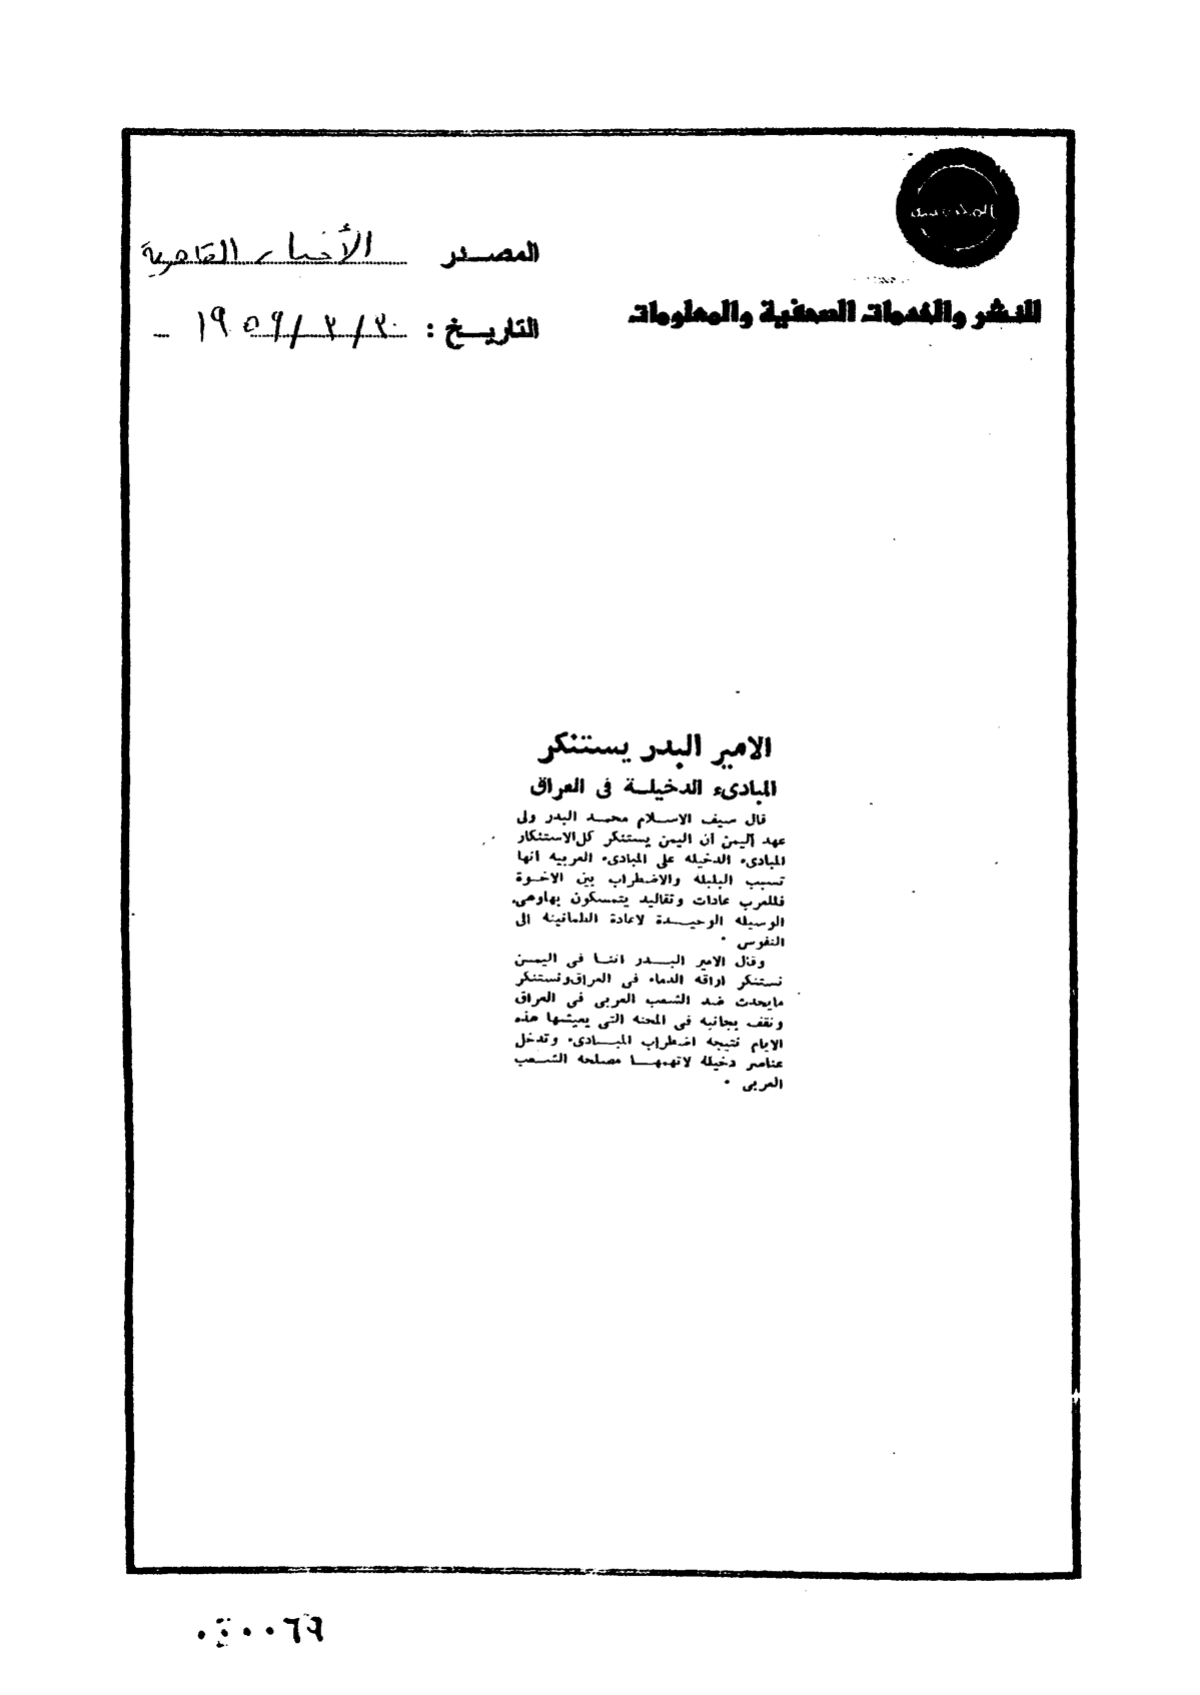 المصــدر الأخبار القاهرية
للنشر والخدمات الصحفية والمعلومات
التاريــخ : ٣٠/٣/١٩٥٩ -
الامير البدر يستنكر
المبادىء الدخيلــة فى العراق
قال سيف الاســلام محمــد البدر ولى
عهد اليمن ان اليمن يستنكر كل الاستنكار
المبادىء الدخيله على المبادىء العربيه انها
تسبب البلبله والاضطراب بين الاخــوة
فللعرب عادات وتقاليد يتمسكون بهاوهى
الوسيله الوحيــــدة لاعادة الطمانينه الى
النفوس .
وقال الامير البــــدر اننــا فى اليمــن
نستنكر اراقه الدماء فى العراق ونستنكر
مايحدث ضد الشعب العربى فى العراق
ونقف بجانبه فى المحنه التى يعيشها هذه
الايام نتيجه اضطراب المبــــادىء وتدخل
عناصر دخيلة لاتهمهــــا مصلحه الشــعب
العربى .